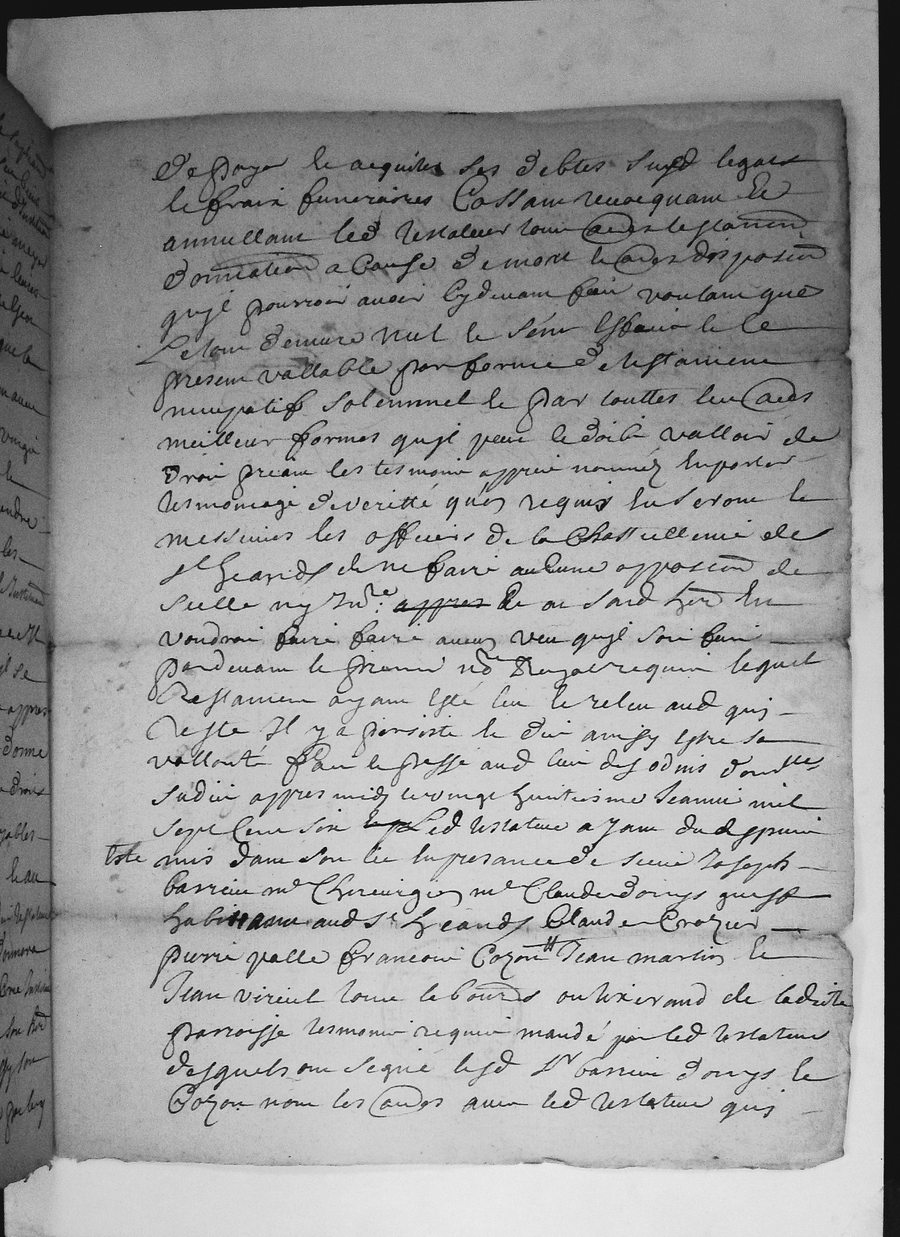 de payer et acquiter ses debtes susd legats
et fraix funeraires Cassant revocquant et
annullant led testateur tous aues testaments
donnation a cause de mort et aues disposon
quil pourroit avoir cydevant fait voulant que
le tout demure nul et sans effait et le
present vallable par forme de testament
nuncupatif solemnel et par touttes les aues
meilleur formes quil peut et doibt valloir de
droit priant les tesmoins appres nommés en porter
tesmoniage de veritté quen requis en seront et
messieurs les officiers de la Chastellenie de
st heand de ne faire aulcune opposon de
sceelle ny Inve appres de au sond herr en
voudroit faire faire aueun veu quil soit fait
pardevant le premier nore Royal requis lequel
testament ayant esté leu et releu aud qui
teste Il y a persisté et dit ainsy estre sa
vollonté fait et passé aud lieu des odins
susdit appres midy le vingt huictiesme Janvier mil
sept Cent six led testateur ayant du depuis
esté mis dans son lit en presance de sieur Joseph
barrieu me Chirurgien me Claude dorys greff
habittants aud St heand Claude Crozier
pierre valle francois Cozon Jean martin et
Jean viricel tous laboureurs ou tixerand de ladite
parroisse tesmoins requis mandé par led testateur
desquels ont signé lesd sr barrieu dorys et
Cozon non les aues avec led testateur qui